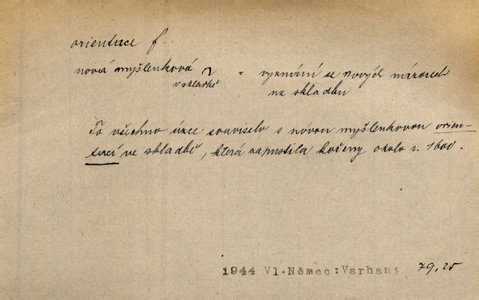 orientace f.
nová myšlenková = vyznání se nových názorech
v skladbě
na skladbu
To všechno úzce souviselo s novou myšlenkovou orien-
tací ve skladbě, která zapustila kořeny okolo r. 1600.
1944 Vl.Němec:Varhany 79,25